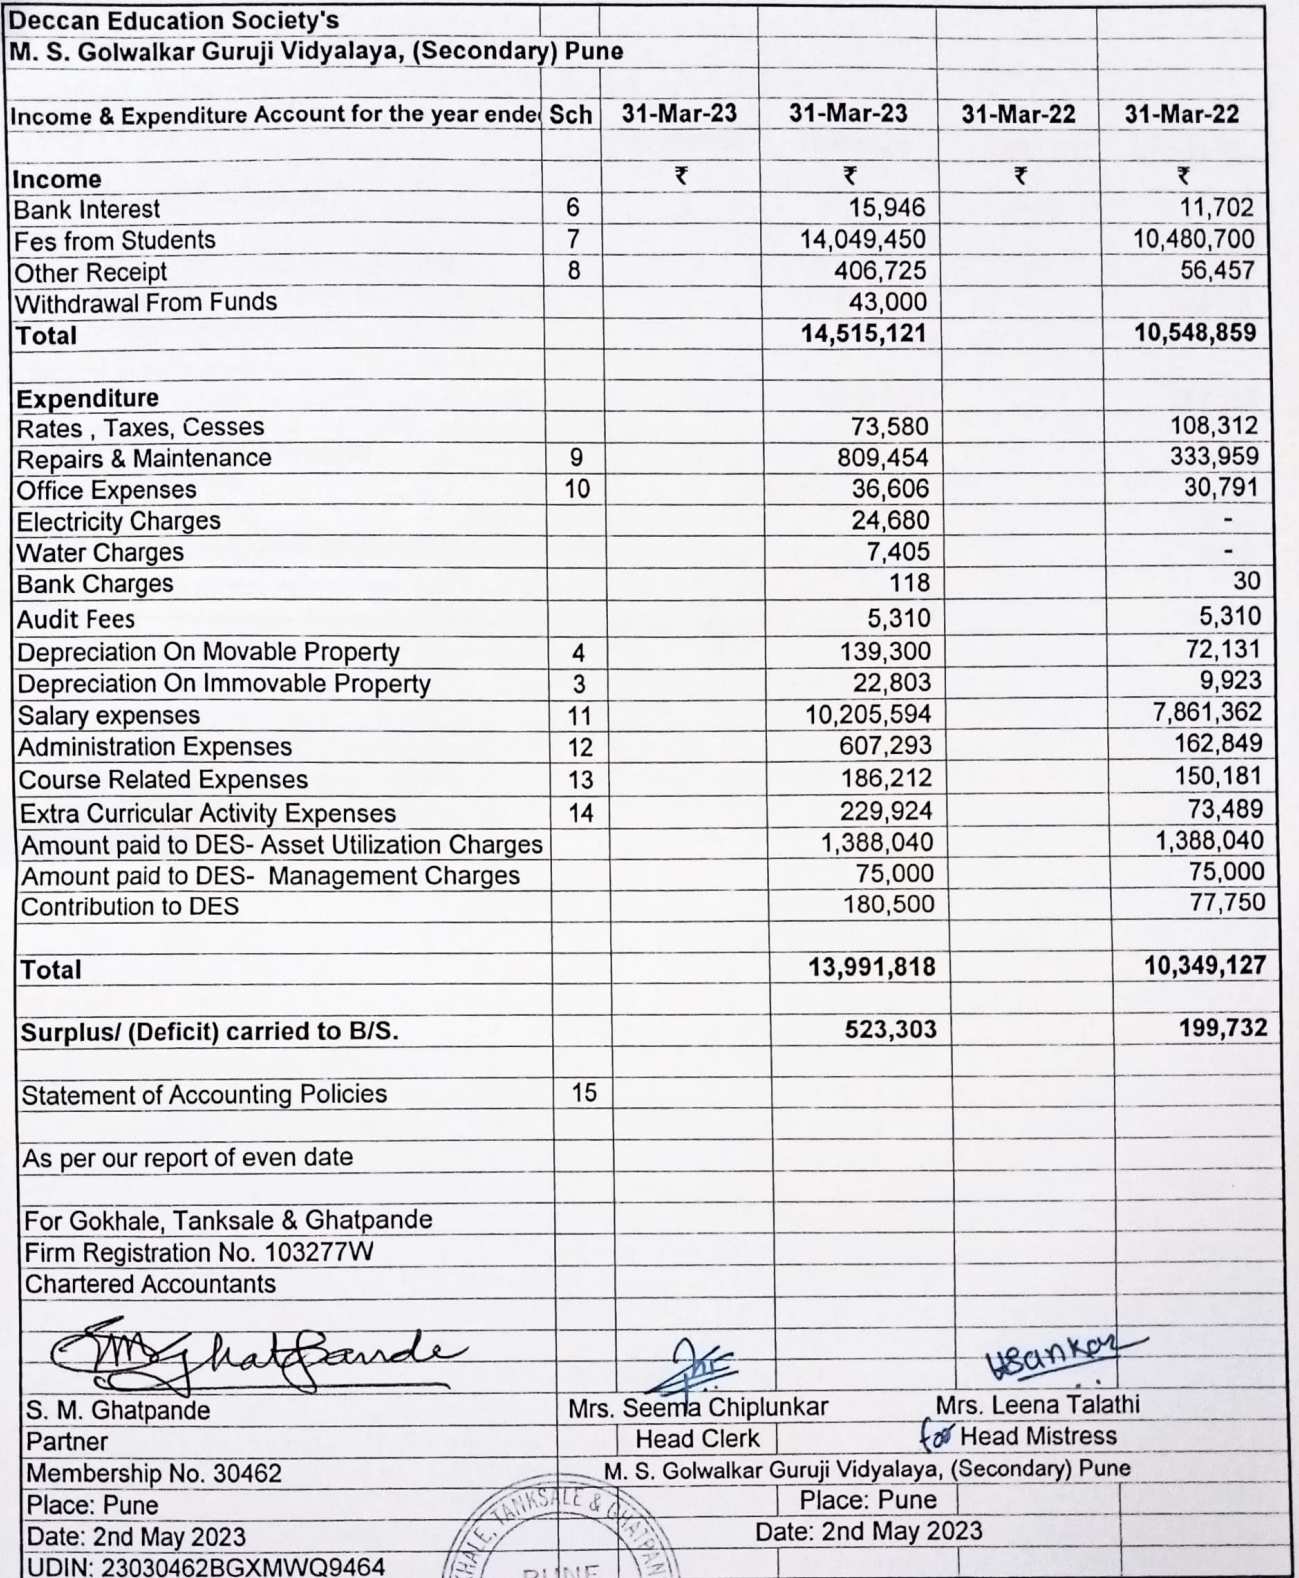 Deccan Education Society's
M. S. Golwalkar Guruji Vidyalaya, (Secondary) Pune
Income & Expenditure Account for the year ende Sch 31-Mar-23 31-Mar-23 31-Mar-22 31-Mar-22
Income ₹ ₹ ₹ ₹
Bank Interest 6 15,946 11,702
Fes from Students 7 14,049,450 10,480,700
Other Receipt 8 406,725 56,457
Withdrawal From Funds 43,000
Total 14,515,121 10,548,859
Expenditure
Rates , Taxes, Cesses 73,580 108,312
Repairs & Maintenance 9 809,454 333,959
Office Expenses 10 36,606 30,791
Electricity Charges 24,680 -
Water Charges 7,405 -
Bank Charges 118 30
Audit Fees 5,310 5,310
Depreciation On Movable Property 4 139,300 72,131
Depreciation On Immovable Property 3 22,803 9,923
Salary expenses 11 10,205,594 7,861,362
Administration Expenses 12 607,293 162,849
Course Related Expenses 13 186,212 150,181
Extra Curricular Activity Expenses 14 229,924 73,489
Amount paid to DES- Asset Utilization Charges 1,388,040 1,388,040
Amount paid to DES- Management Charges 75,000 75,000
Contribution to DES 180,500 77,750
Total 13,991,818 10,349,127
Surplus/ (Deficit) carried to B/S. 523,303 199,732
Statement of Accounting Policies 15
As per our report of even date
For Gokhale, Tanksale & Ghatpande
Firm Registration No. 103277W
Chartered Accountants
SMGhatpande
S. M. Ghatpande Mrs. Seema Chiplunkar Mrs. Leena Talathi
Partner Head Clerk for Head Mistress
Membership No. 30462 M. S. Golwalkar Guruji Vidyalaya, (Secondary) Pune
Place: Pune Place: Pune
Date: 2nd May 2023 Date: 2nd May 2023
UDIN: 23030462BGXMWQ9464
KHALE, TANKSALE & GHATPAN
PUNE